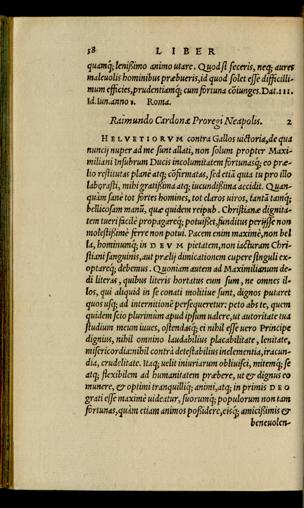 38 LIBER
quamq; lenißimo animo utare. Quod si feceris, neq; aures
maleuolis hominibus præbueris, id quod solet esse difficilli-
mum efficies, prudentiamq; cum fortuna cōiunges. Dat. III.
Id. Iun. anno 1. Roma.
Raimundo Cardonæ Proregi Neapolis. 2
HELVETIORVM contra Gallos uictoria, de qua
nuncij nuper ad me sunt allati, non solum propter Maxi-
miliani Insubrum Ducis incolumitatem fortunasq; eo præ-
lio restitutas planè atq; cōfirmatas, sed etiā quia tu pro illo
laborasti, mihi gratißima atq; iucundißima accidit. Quan-
quàm sanè tot fortes homines, tot claros uiros, tantā tamq;
bellicosam manū, quæ quidem reipub. Christianæ dignita-
tem tueri facilè propagareq; potuißet, funditus perijsse non
molestißimè ferre non potui. Pacem enim maximè, non bel
la, hominumq; in DEVM pietatem, non iacturam Chri-
stiani sanguinis, aut prælij dimicationem cupere singuli ex-
optareq; debemus. Quoniam autem ad Maximilianum de-
di literas, quibus literis hortatus eum sum, ne omnes il-
los, qui aliquid in se conati molitiue sunt, dignos putaret
quos usq; ad internitionē persequeretur: peto abs te, quem
quidem scio plurimùm apud ipsum ualere, ut autoritate tua
studium meum iuues, ostendasq; ei nihil esse uero Principe
dignius, nihil omnino laudabilius placabilitate, lenitate,
misericordia: nihil contrà detestabilius inclementia, iracun-
dia, crudelitate. Itaq; uelit iniuriarum obliuisci, mitemq; se
atq; flexibilem ad humanitatem præbere, ut & dignus eo
munere, & optimi tranquilliq; animi, atq; in primis DEO
grati esse maximè uideatur, suorumq; populorum non tam
fortunas, quàm etiam animos poßidere, eisq; amicißimis &
beneuolen-